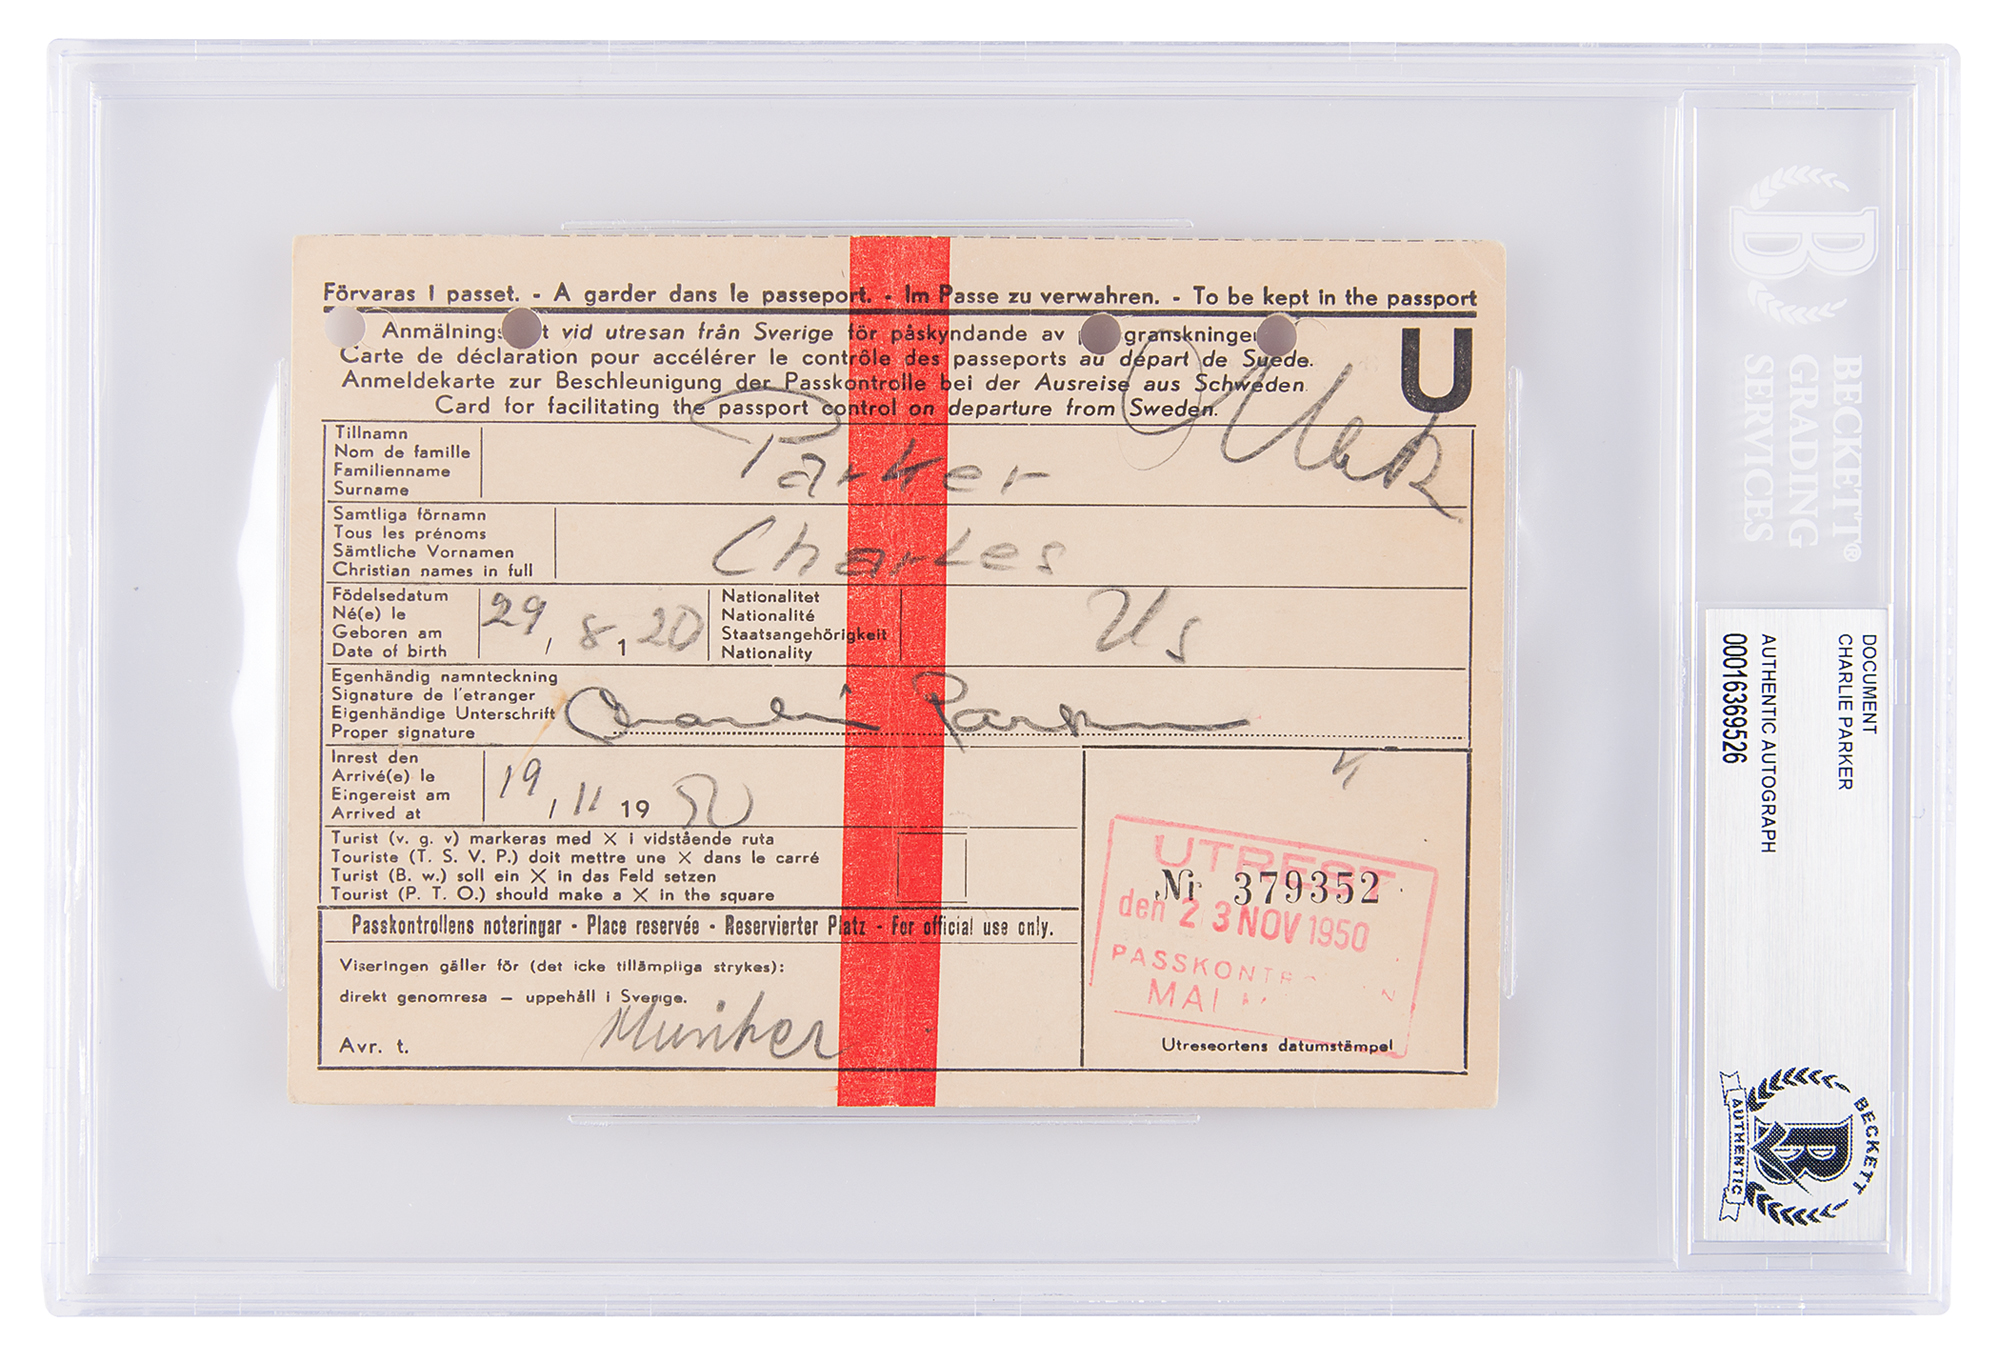 Förvaras I passet. - A garder dans le passeport. - Im Passe zu verwahren. - To be kept in the passport
Anmälnings t vid utresan från Sverige för påskyndande av granskningen
Carte de déclaration pour accélérer le contrôle des passeports au départ de Suede.
Anmeldekarte zur Beschleunigung der Passkontrolle bei der Ausreise aus Schweden.
Card for facilitating the passport control on departure from Sweden.
U
Tillnamn
Nom de famille
Familienname
Surname
Parker
Samtliga förnamn
Tous les prénoms
Sämtliche Vornamen
Christian names in full
Charles
Födelsedatum
Né(e) le
Geboren am
Date of birth
29, 8, 1 20
Nationalitet
Nationalité
Staatsangehörigkeit
Nationality
Us
Egenhändig namnteckning
Signature de l'etranger
Eigenhändige Unterschrift
Proper signature
Charlie Parker
Inrest den
Arrivé(e) le
Eingereist am
Arrived at
19, 11 19 50
Turist (v. g. v) markeras med X i vidstående ruta
Touriste (T. S. V. P.) doit mettre une X dans le carré
Turist (B. w.) soll ein X in das Feld setzen
Tourist (P. T. O.) should make a X in the square
Passkontrollens noteringar - Place reservée - Reservierter Platz - For official use only.
Viseringen gäller för (det icke tillämpliga strykes):
direkt genomresa — uppehåll i Sverige.
Avr. t.
UTREST
Nr 379352
den 23 NOV 1950
PASSKONTR N
MAL
Utreseortens datumstämpel
BECKETT®
GRADING
SERVICES
DOCUMENT
CHARLIE PARKER
AUTHENTIC AUTOGRAPH
00016369526
BECKETT
AUTHENTIC